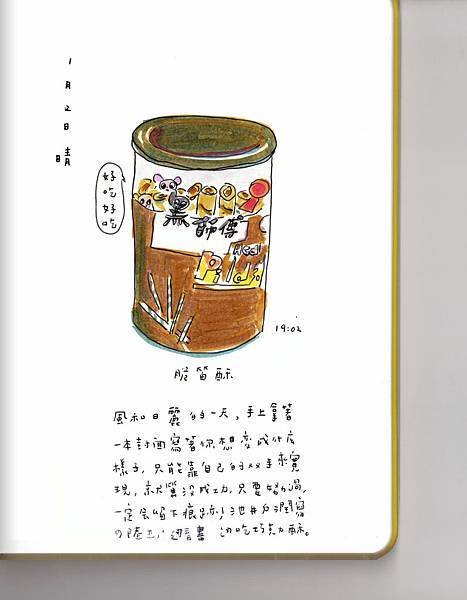 1月2日 晴
好吃好吃
黑師傅
19:02
脆笛酥
風和日麗的一天，手上拿著
一本封面寫著你想變成什麼
樣子，只能靠自己的双手來實
現，就算沒成功，只要努力過，
一定会留下痕跡！池井戶潤寫
の陸王，边看書 边吃巧克力酥。